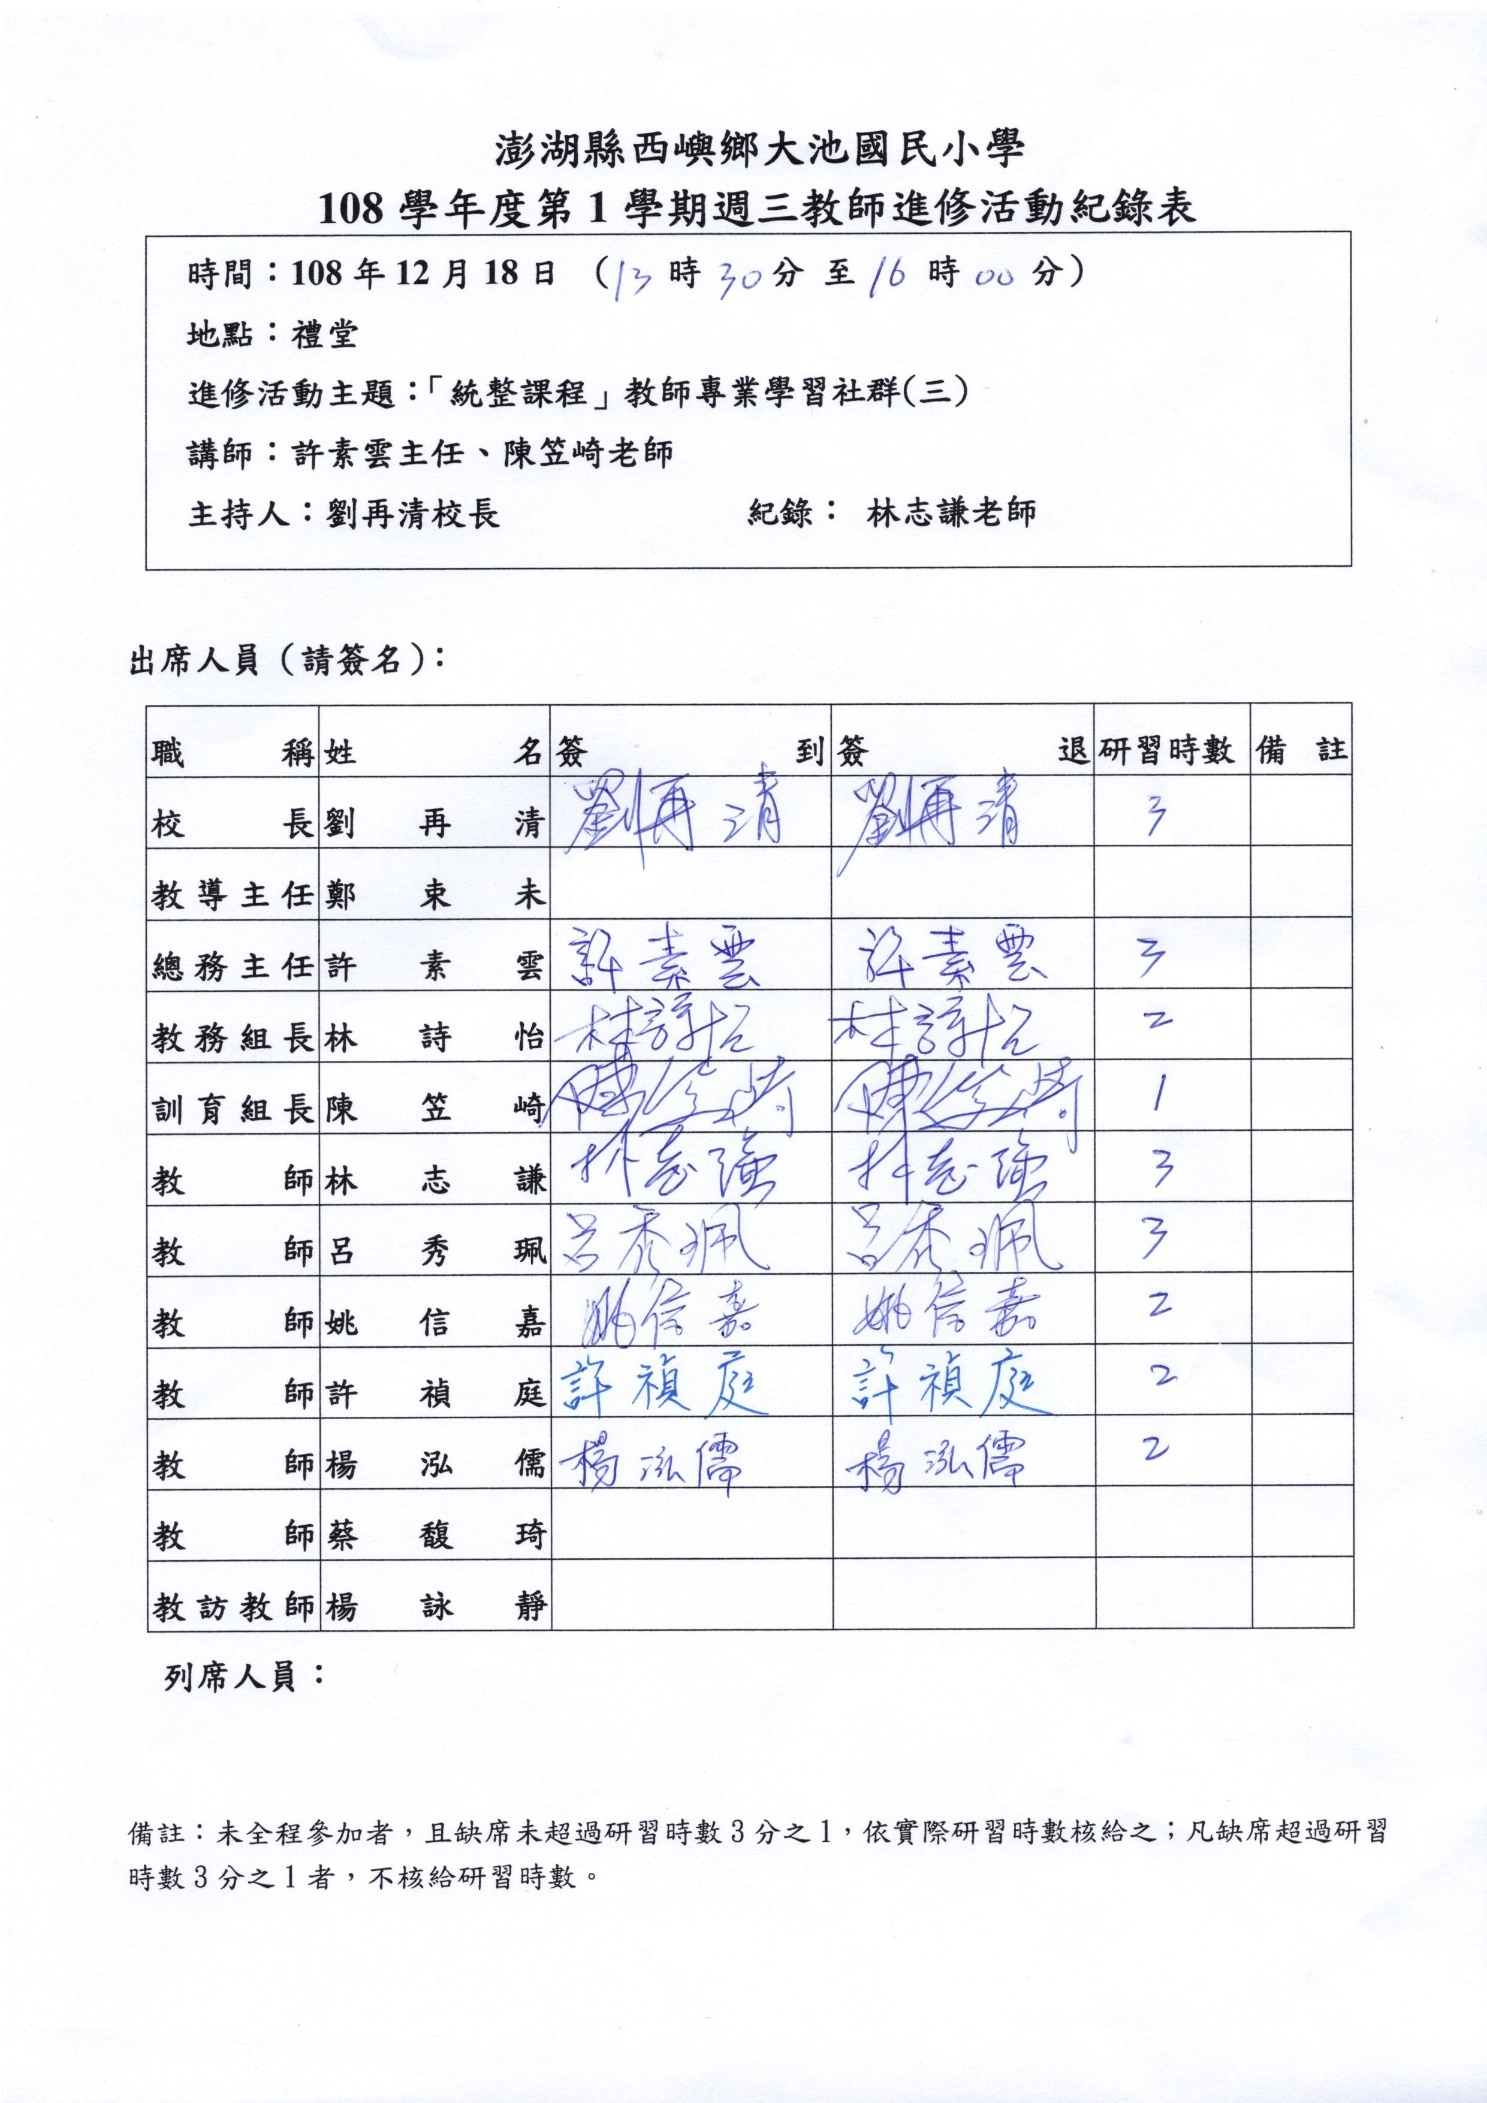 澎湖縣西嶼鄉大池國民小學
108 學年度第 1 學期週三教師進修活動紀錄表
時間：108 年 12 月 18 日 （13 時 30 分 至 16 時 00 分）
地點：禮堂
進修活動主題：「統整課程」教師專業學習社群(三)
講師：許素雲主任、陳笠崎老師
主持人：劉再清校長 紀錄： 林志謙老師
出席人員（請簽名）：
職稱 姓名 簽到 簽退 研習時數 備註
校長 劉再清 劉再清 劉再清 3
教導主任 鄭束未
總務主任 許素雲 許素雲 許素雲 3
教務組長 林詩怡 林詩怡 林詩怡 2
訓育組長 陳笠崎 陳笠崎 陳笠崎 1
教師 林志謙 林志謙 林志謙 3
教師 呂秀珮 呂秀珮 呂秀珮 3
教師 姚信嘉 姚信嘉 姚信嘉 2
教師 許禎庭 許禎庭 許禎庭 2
教師 楊泓儒 楊泓儒 楊泓儒 2
教師 蔡馥琦
教訪教師 楊詠靜
列席人員：
備註：未全程參加者，且缺席未超過研習時數 3 分之 1，依實際研習時數核給之；凡缺席超過研習
時數 3 分之 1 者，不核給研習時數。